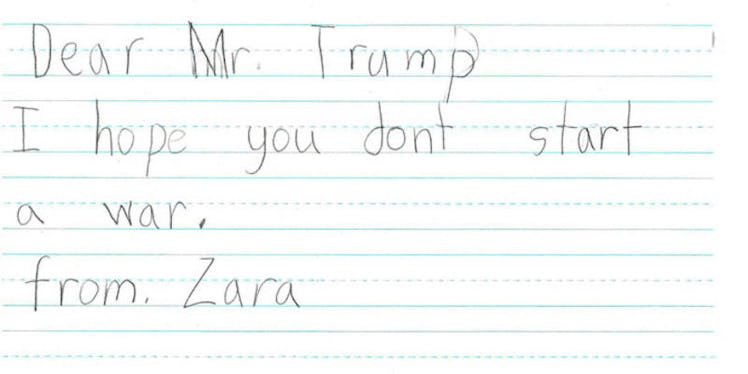 Dear Mr. Trump
I hope you dont start
a war.
from. Zara